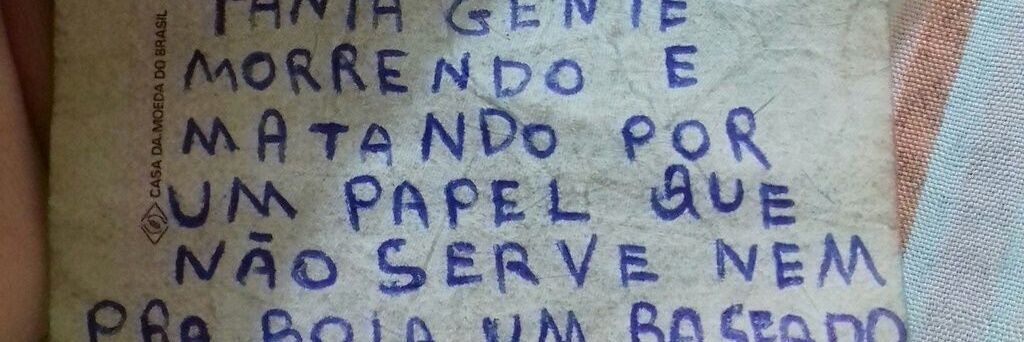 TANTA GENTE
MORRENDO E
MATANDO POR
UM PAPEL QUE
NÃO SERVE NEM
PRA BOLA UM BASEADO
CASA DA MOEDA DO BRASIL